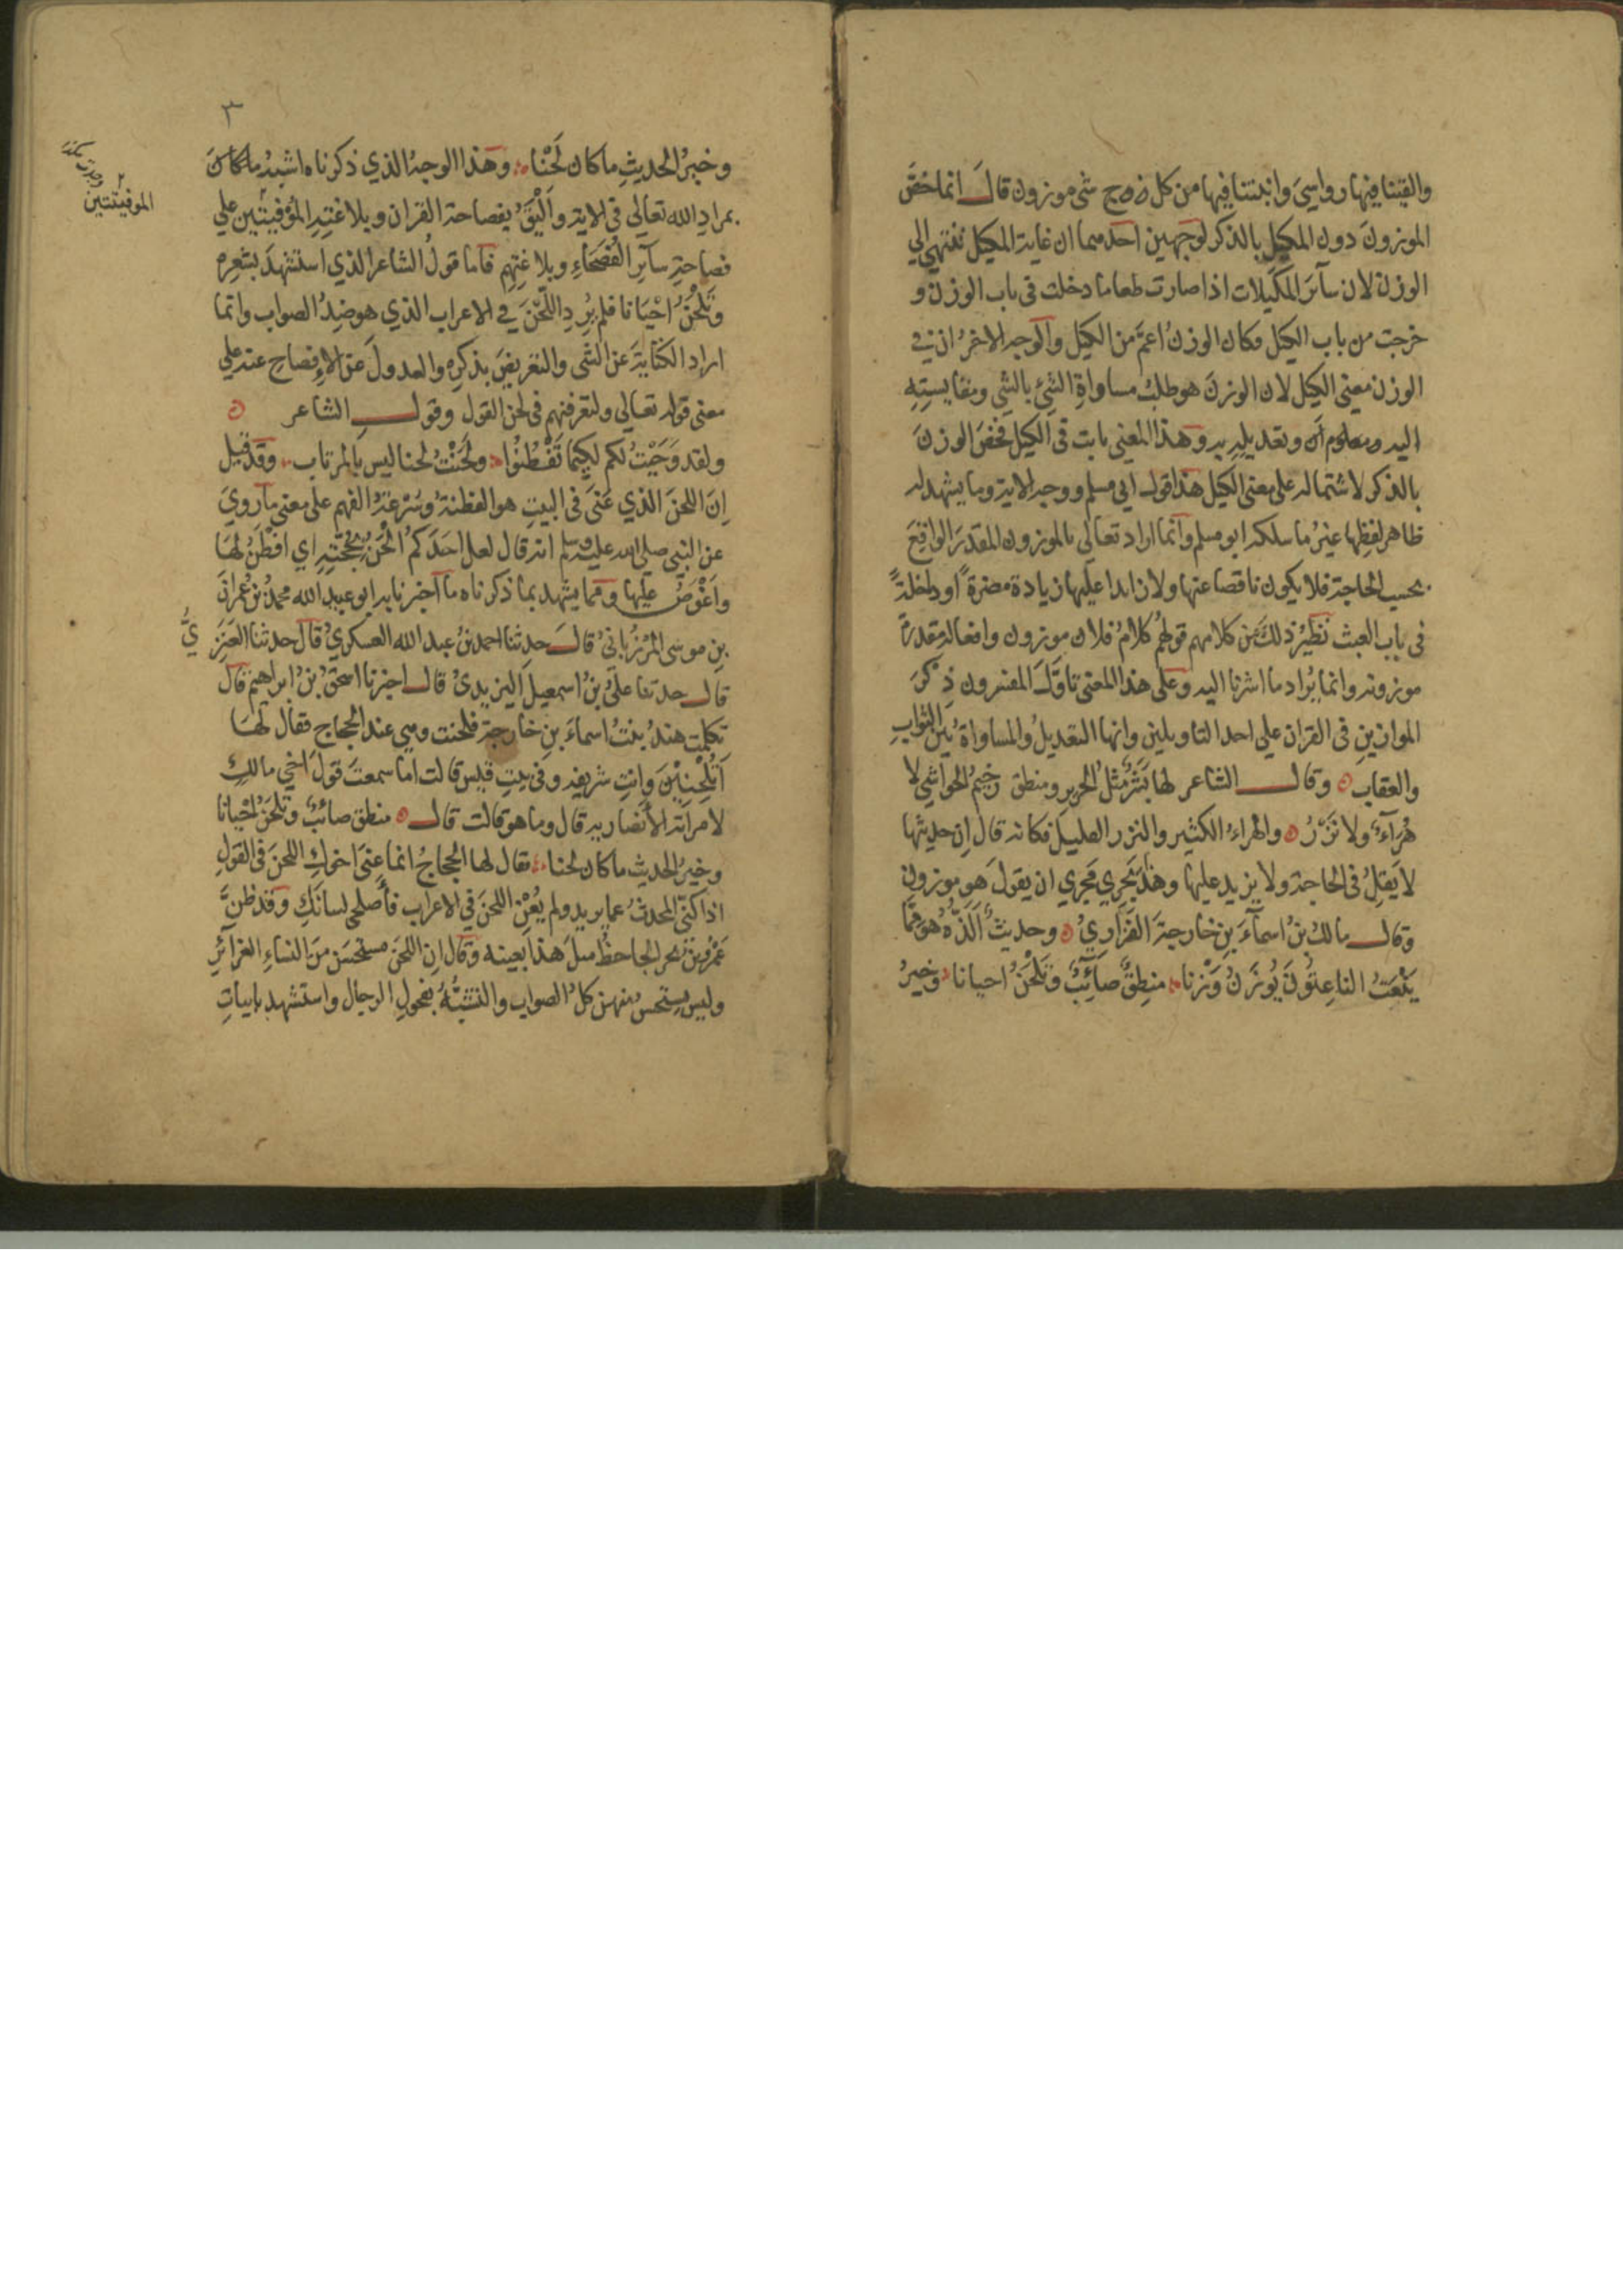 والقينا فيها رواسي وانبتنا فيها من كل زوج شي موزون قال انما خصَّ
الموزون دون المكيل بالذكر لوجهين احدهما ان غاية المكيل تنتهي الي
الوزن لان سآئر المكيلات اذا صارت طعاما دخلت في باب الوزن و
خرجت من باب الكيل فكان الوزنُ اعمَّ من الكيل والوجه الاخرُ ان في
الوزن معني الكيل لان الوزنَ هو طلبُ مساواةِ الشيْ بالشي ومقايستِهِ
اليه وتعديلِهِ به وهذا المعني ثابت في الكيل فخصَّ الوزنَ
بالذكر لاشتماله علي معني الكيل هذا قول ابي مسلم ووجه الاية وما يشهد له
ظاهر لفظِها غيرُ ما سلكه ابو مسلم وانما اراد تعالي بالموزون المقدرَ الواقعَ
بحسب الحاجة فلا يكون ناقصا عنها ولا زايدا عليها زيادة مضرةً او داخلةً
في باب العبث نظيرُ ذلك من كلامهم قولهُم كلامُ فلان موزون وافعاله مقدرة
موزونه وانما يُراد ما اشرنا اليه وعلي هذا المعني تاوَّل المفسرون ذِكرَ
الموازينِ في القران علي احد التاويلين وانها التعديلُ والمساواةُ بين الثوابِ
والعقاب وقال الشاعر لها بَشَرٌ مثلُ الحرير ومنطق رخيمُ الحواشي لا
هُرَآءٌ ولا نَزْرُ والهراءُ الكثير والنزر القليل فكانه قال ان حديثها
لا يَقِلُ في الحاجة ولا يزيد عليها وهذا يَجري مَجري ان يقولَ هو موزون
وقال مالك بنُ اسمآءَ بنِ خارجةَ الفَزَاريُ وحديثٌ اَلَذُّهُ هو ممَّا
يَنْعَتُ الناعِتُونَ يُوزَنُ وَزْنا منطِقٌ صَآئِبٌ وتَلْحَنُ احيانا وخيرُ
٣
وخيرُ الحديثِ ما كان لَحْنا وهذا الوجهُ الذي ذكرناه اشبهُ ما كان
بمرادِ الله تعالي في الاية واَلْيَقُ بفصاحة القران وبلاغتِهِ الموفيتين علي
الموفيتتين
فصاحةِ سآئرِ الفُصَحَاءِ وبلاغتِهِم فاما قولُ الشاعر الذي استشهدَ بشعره
وتَلْحَنُ اَحْيَانا فلم يُرِدِ اللَّحْنَ في الاعراب الذي هو ضِدُ الصواب وانما
اراد الكنايةَ عن الشي والتعريضَ بذكرِه والعدولَ عن الاِفصاح عنه علي
معني قوله تعالي ولتعرفنهم في لحن القول وقول الشاعر
ولقد وَحَيْتُ لكم لكيما تَفْطُنُوا ولَحَنْتُ لحنا ليس بالمرتاب وقد قيل
اِنَ اللحنَ الذي عَنيَ في البيتِ هو الفطنةُ وسُرعةُ الفهم علي معني ما رويَ
عن النبي صلي الله عليه وسلم انه قال لعل احَدَكُم اَلْحَنُ بحُجَّتِهِ اي افْطَنُ لها
واَغْوَصُ عليها ومما يشهد بما ذكرناه ما اخبرنا به ابو عبيد الله محمدُ بنُ عمرانَ
بنِ موسي المَرْزُبانيُ قال حدثنا احمد بنُ عبد الله العسكريُ قال حدثنا العَنَزِيُّ
قال حدثنا عليُ بنُ اسمعيلَ اليزيديُ قال اخبرنا اسحقُ بنُ ابراهيم قال
تكلمت هندُ بنتُ اسماءَ بنِ خارجة فلحنت وهي عند الحجاج فقال لها
اَتَلْحَنِيْنَ وانتِ شريفه وفي بيتِ قيس قالت اما سمعتَ قولَ اخي مالكٍ
لامراته الانصاريه قال وما هو قالت قال منطق صائبٌ وتلحنُ احيانا
وخيرُ الحديث ما كان لحنا فقال لها الحجاجُ انما عَنيَ اخوكِ اللحنَ في القولِ
اذا كنيَّ المحدثُ عما يريد ولم يَعْنِ اللحنَ في الاعراب فأصلحي لسانَكِ وقد ظنَّ
عَمْرُو بنُ بحر الجاحظُ مثلَ هذا بعينه وقال ان اللحنَ مستحسَن من النساءِ الغرآئرِ
وليس يستحسُ منهن كلُ الصواب والتشبُّهُ بفحولِ الرجال واستشهد بابياتِ